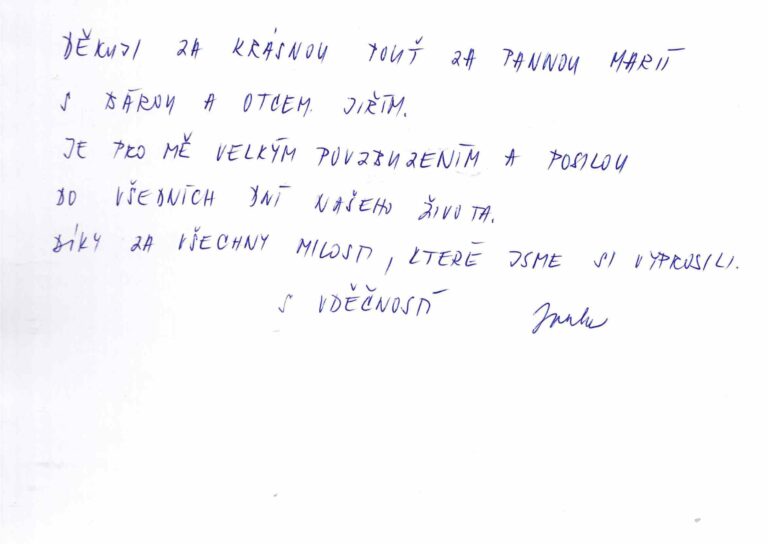 DĚKUJI ZA KRÁSNOU POUŤ ZA PANNOU MARIÍ
S BÁROU A OTCEM JIŘÍM.
JE PRO MĚ VELKÝM POVZBUZENÍM A POSILOU
DO VŠEDNÍCH DNÍ NAŠEHO ŽIVOTA.
DÍKY ZA VŠECHNY MILOSTI, KTERÉ JSME SI VYPROSILI.
S VDĚČNOSTÍ